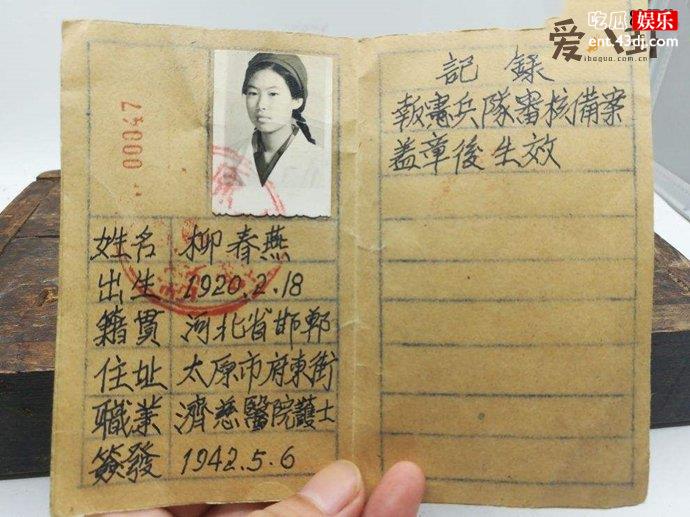 吃瓜 娱乐
ent.43dj.com
ibagua.com.cn
00047
姓名 柳春燕
出生 1920.2.18
籍貫 河北省邯鄲
住址 太原市府東街
職業 濟慈醫院護士
簽發 1942.5.6
記錄
報憲兵隊審核備案
盖章後生效